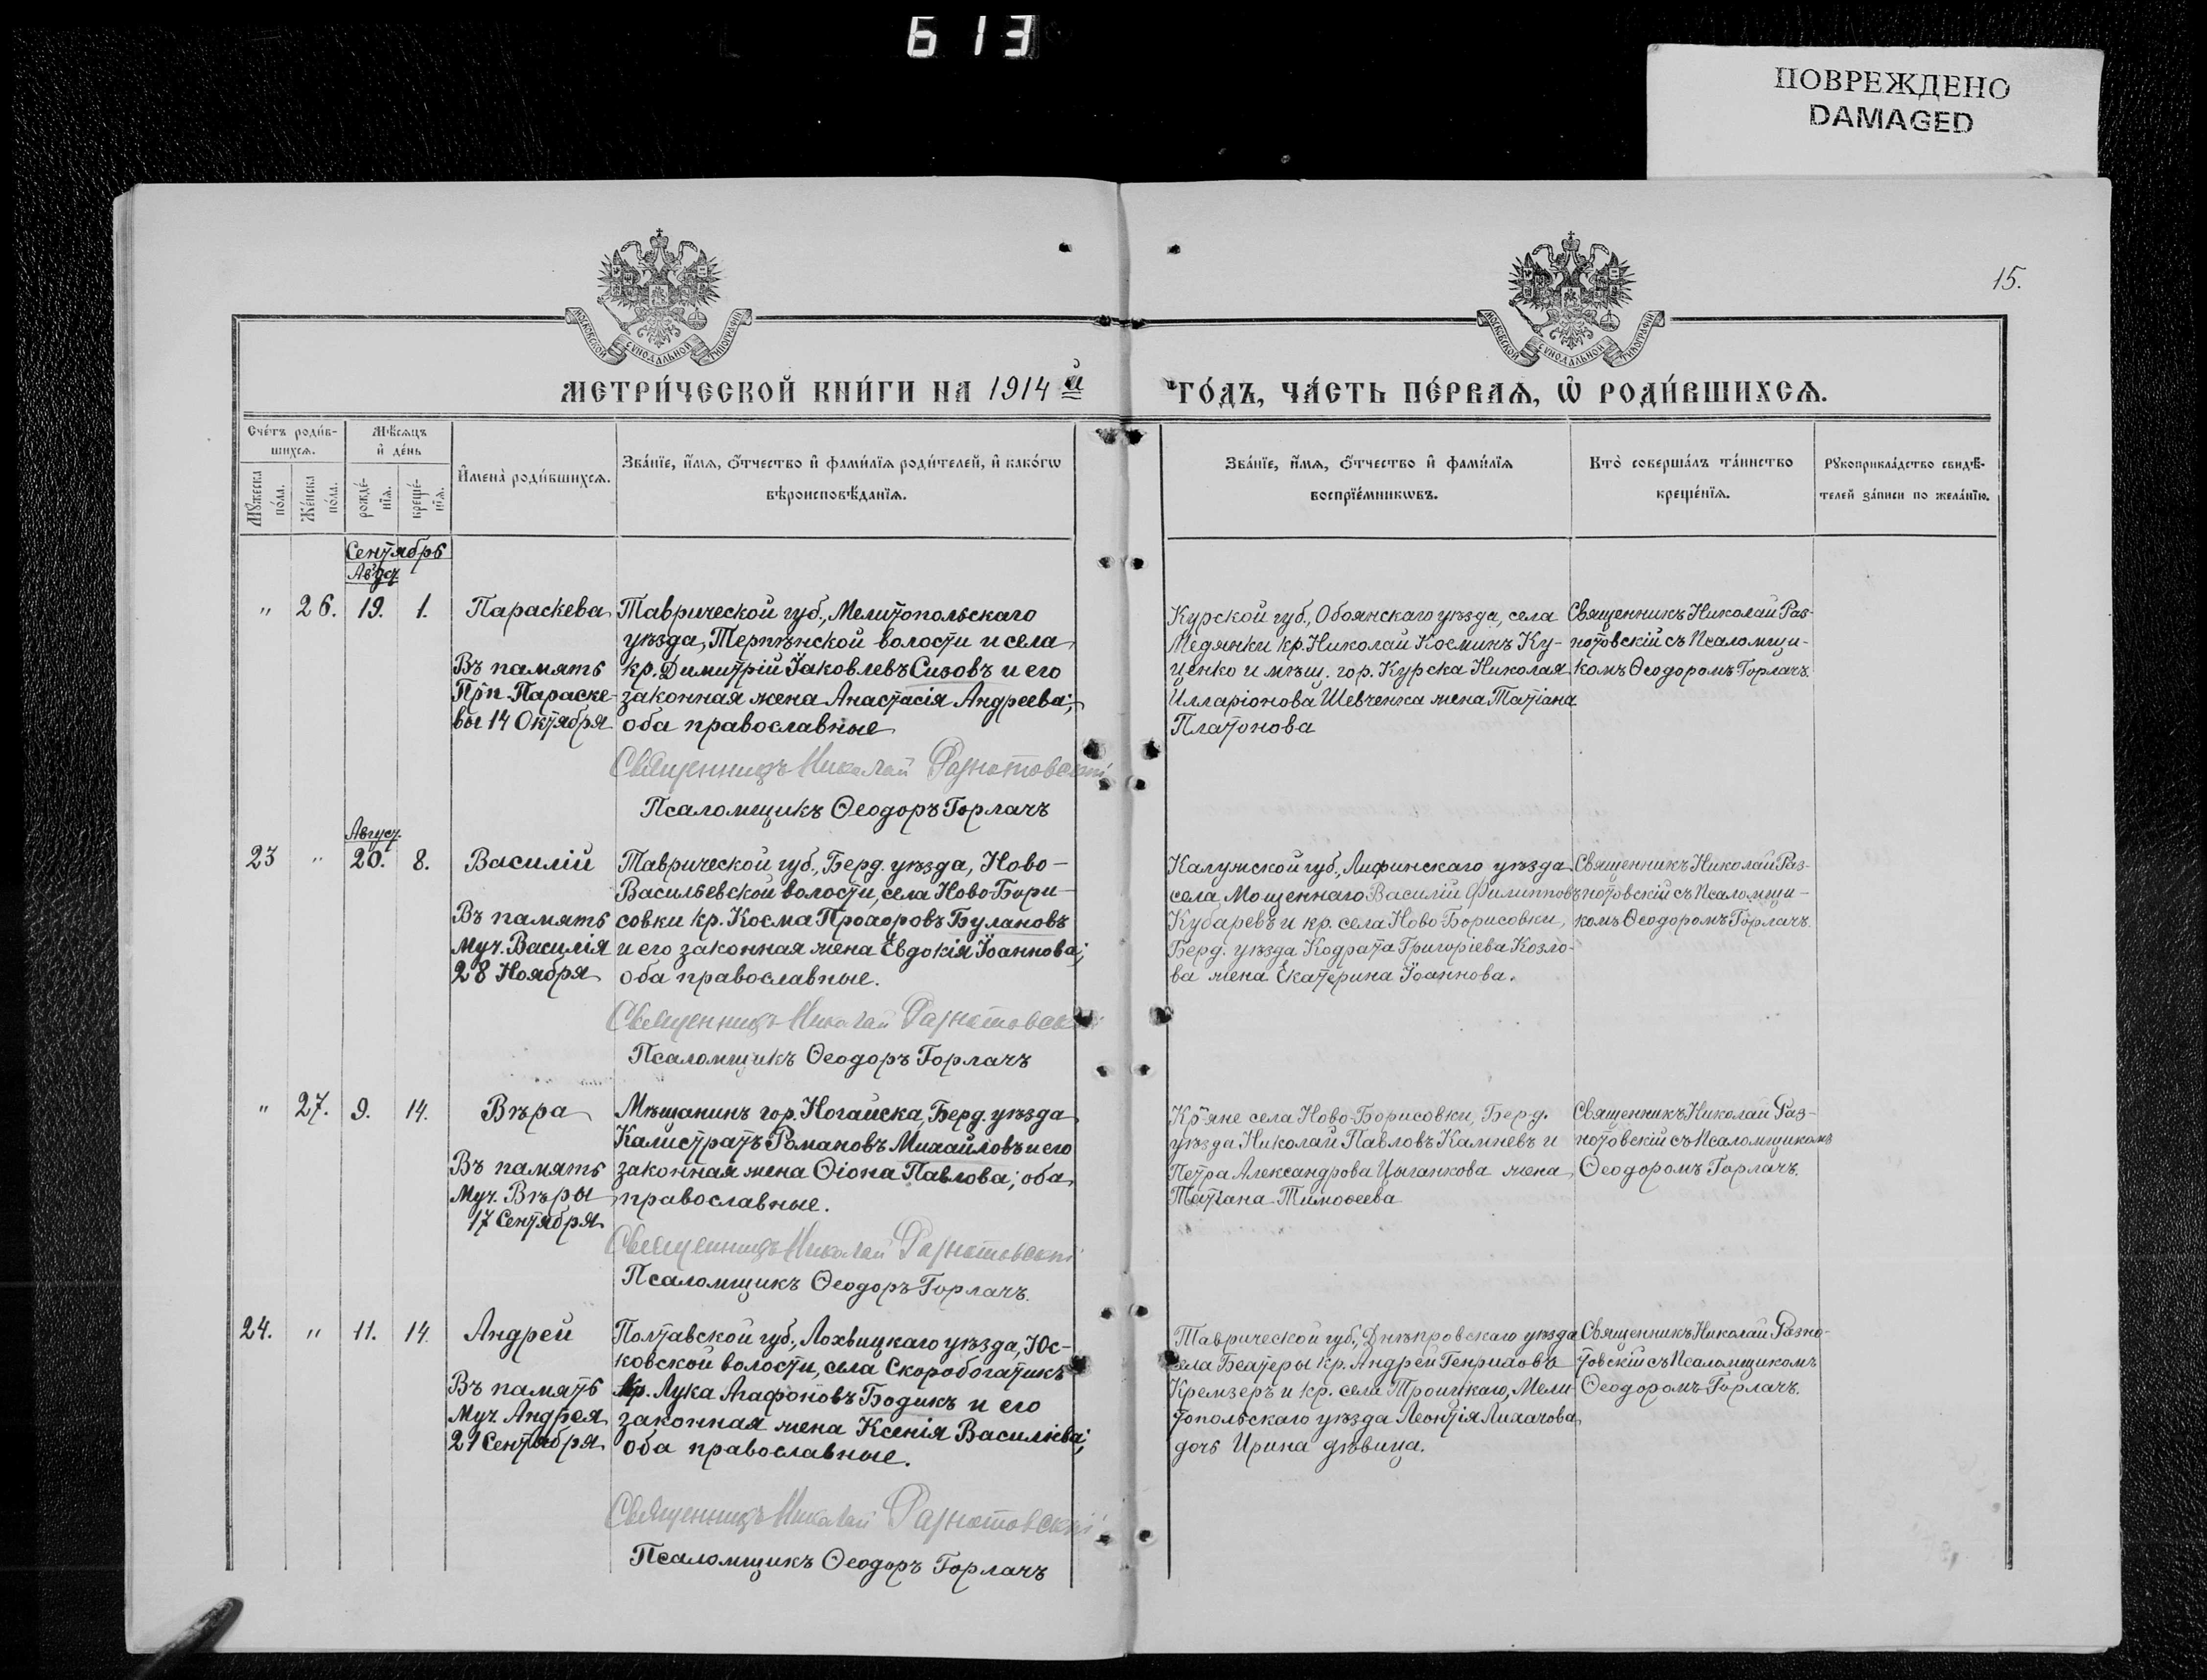 613
ПОВРЕЖДЕНО
DAMAGED
15.
МОСКОВСКОЙ СѴНОДАЛЬНОЙ ТИПОГРАФІИ
МОСКОВСКОЙ СѴНОДАЛЬНОЙ ТИПОГРАФІИ
МЕТРИ́ЧЕСКОЙ КНИ́ГИ НА 1914 й
ГО́ДЪ, ЧА́СТЬ ПЕ́РВАѦ, Ѡ҆ РОДИ́ВШИХСѦ.
Сче́тъ роди́в-
шихсѧ.
Мꙋ́жеска по́ла.
Же́нска по́ла.
Мѣ́сѧцъ
и҆ де́нь
рожде́-нїѧ.
креще́-нїѧ.
И҆мена̀ роди́вшихсѧ.
Зва́нїе, и҆́мѧ, ѻ҆́тчество и҆ фами́лїѧ роди́телей, и҆ како́гѡ
вѣроисповѣ́данїѧ.
Зва́нїе, и҆́мѧ, ѻ҆́тчество и҆ фами́лїѧ
воспрїе́мникѡвъ.
Кто̀ соверша́лъ та́инство
креще́нїѧ.
Рꙋкоприкла́дство свидѣ́-
телей за́писи по жела́нїю.
Сентябрь
Авгус.
" 26. 19. 1. Параскева
Въ память
Прп. Параске-
вы 14 Октября
Таврической губ., Мелитопольскаго
уѣзда, Терпѣнской волости и села
кр. Димитрій Іаковлевъ Сизовъ и его
законная жена Анастасія Андреева;
оба православные
Священникъ Николай Разнотовскій
Псаломщикъ Ѳеодоръ Горлачъ
Курской губ., Обоянскаго уѣзда, села
Медянки кр. Николай Косминъ Ку-
ценко и мѣщ. гор. Курска Николая
Илларіонова Шевченка жена Татіана
Платонова
Священникъ Николай Раз-
нотовскій съ Псаломщи-
комъ Ѳеодоромъ Горлачъ.
Август.
23 " 20. 8. Василій
Въ память
Муч. Василія
28 Ноября
Таврической губ., Берд. уѣзда, Ново-
Васильевской волости, села Ново-Бори-
совки кр. Косма Прохоровъ Булановъ
и его законная жена Евдокія Іоаннова;
оба православные.
Священникъ Николай Разнотовскій
Псаломщикъ Ѳеодоръ Горлачъ
Калужской губ., Лифинскаго уѣзда
села Мощеннаго Василій Филипповъ
Кубаревъ и кр. села Ново-Борисовки,
Берд. уѣзда Кодрата Григоріева Козло-
ва жена Екатерина Іоаннова.
Священникъ Николай Раз-
нотовскій съ Псаломщи-
комъ Ѳеодоромъ Горлачъ.
" 27. 9. 14. Вѣра
Въ память
Муч. Вѣры
17 Сентября
Мѣщанинъ гор. Ногайска, Берд. уѣзда
Калистратъ Романовъ Михайловъ и его
законная жена Ѳіона Павлова; оба
православные.
Священникъ Николай Разнотовскій
Псаломщикъ Ѳеодоръ Горлачъ.
Кр-яне села Ново-Борисовки, Берд.
уѣзда Николай Павловъ Камневъ и
Петра Александрова Цыганкова жена
Татіана Тимоѳеева
Священникъ Николай Раз-
нотовскій съ Псаломщикомъ
Ѳеодоромъ Горлачъ.
24. " 11. 14. Андрей
Въ память
Муч. Андрея
21 Сентября
Полтавской губ., Лохвицкаго уѣзда, Юс-
ковской волости, села Скоробогатикъ
кр. Лука Агафоновъ Бодикъ и его
законная жена Ксенія Василіева;
оба православные.
Священникъ Николай Разнотовскій
Псаломщикъ Ѳеодоръ Горлачъ
Таврической губ., Днѣпровскаго уѣзда
села Беатеры кр. Андрей Генриховъ
Кремзеръ и кр. села Троицкаго, Мели-
топольскаго уѣзда Леонтія Лихачова
дочь Ирина дѣвица.
Священникъ Николай Разно-
товскій съ Псаломщикомъ
Ѳеодоромъ Горлачъ.